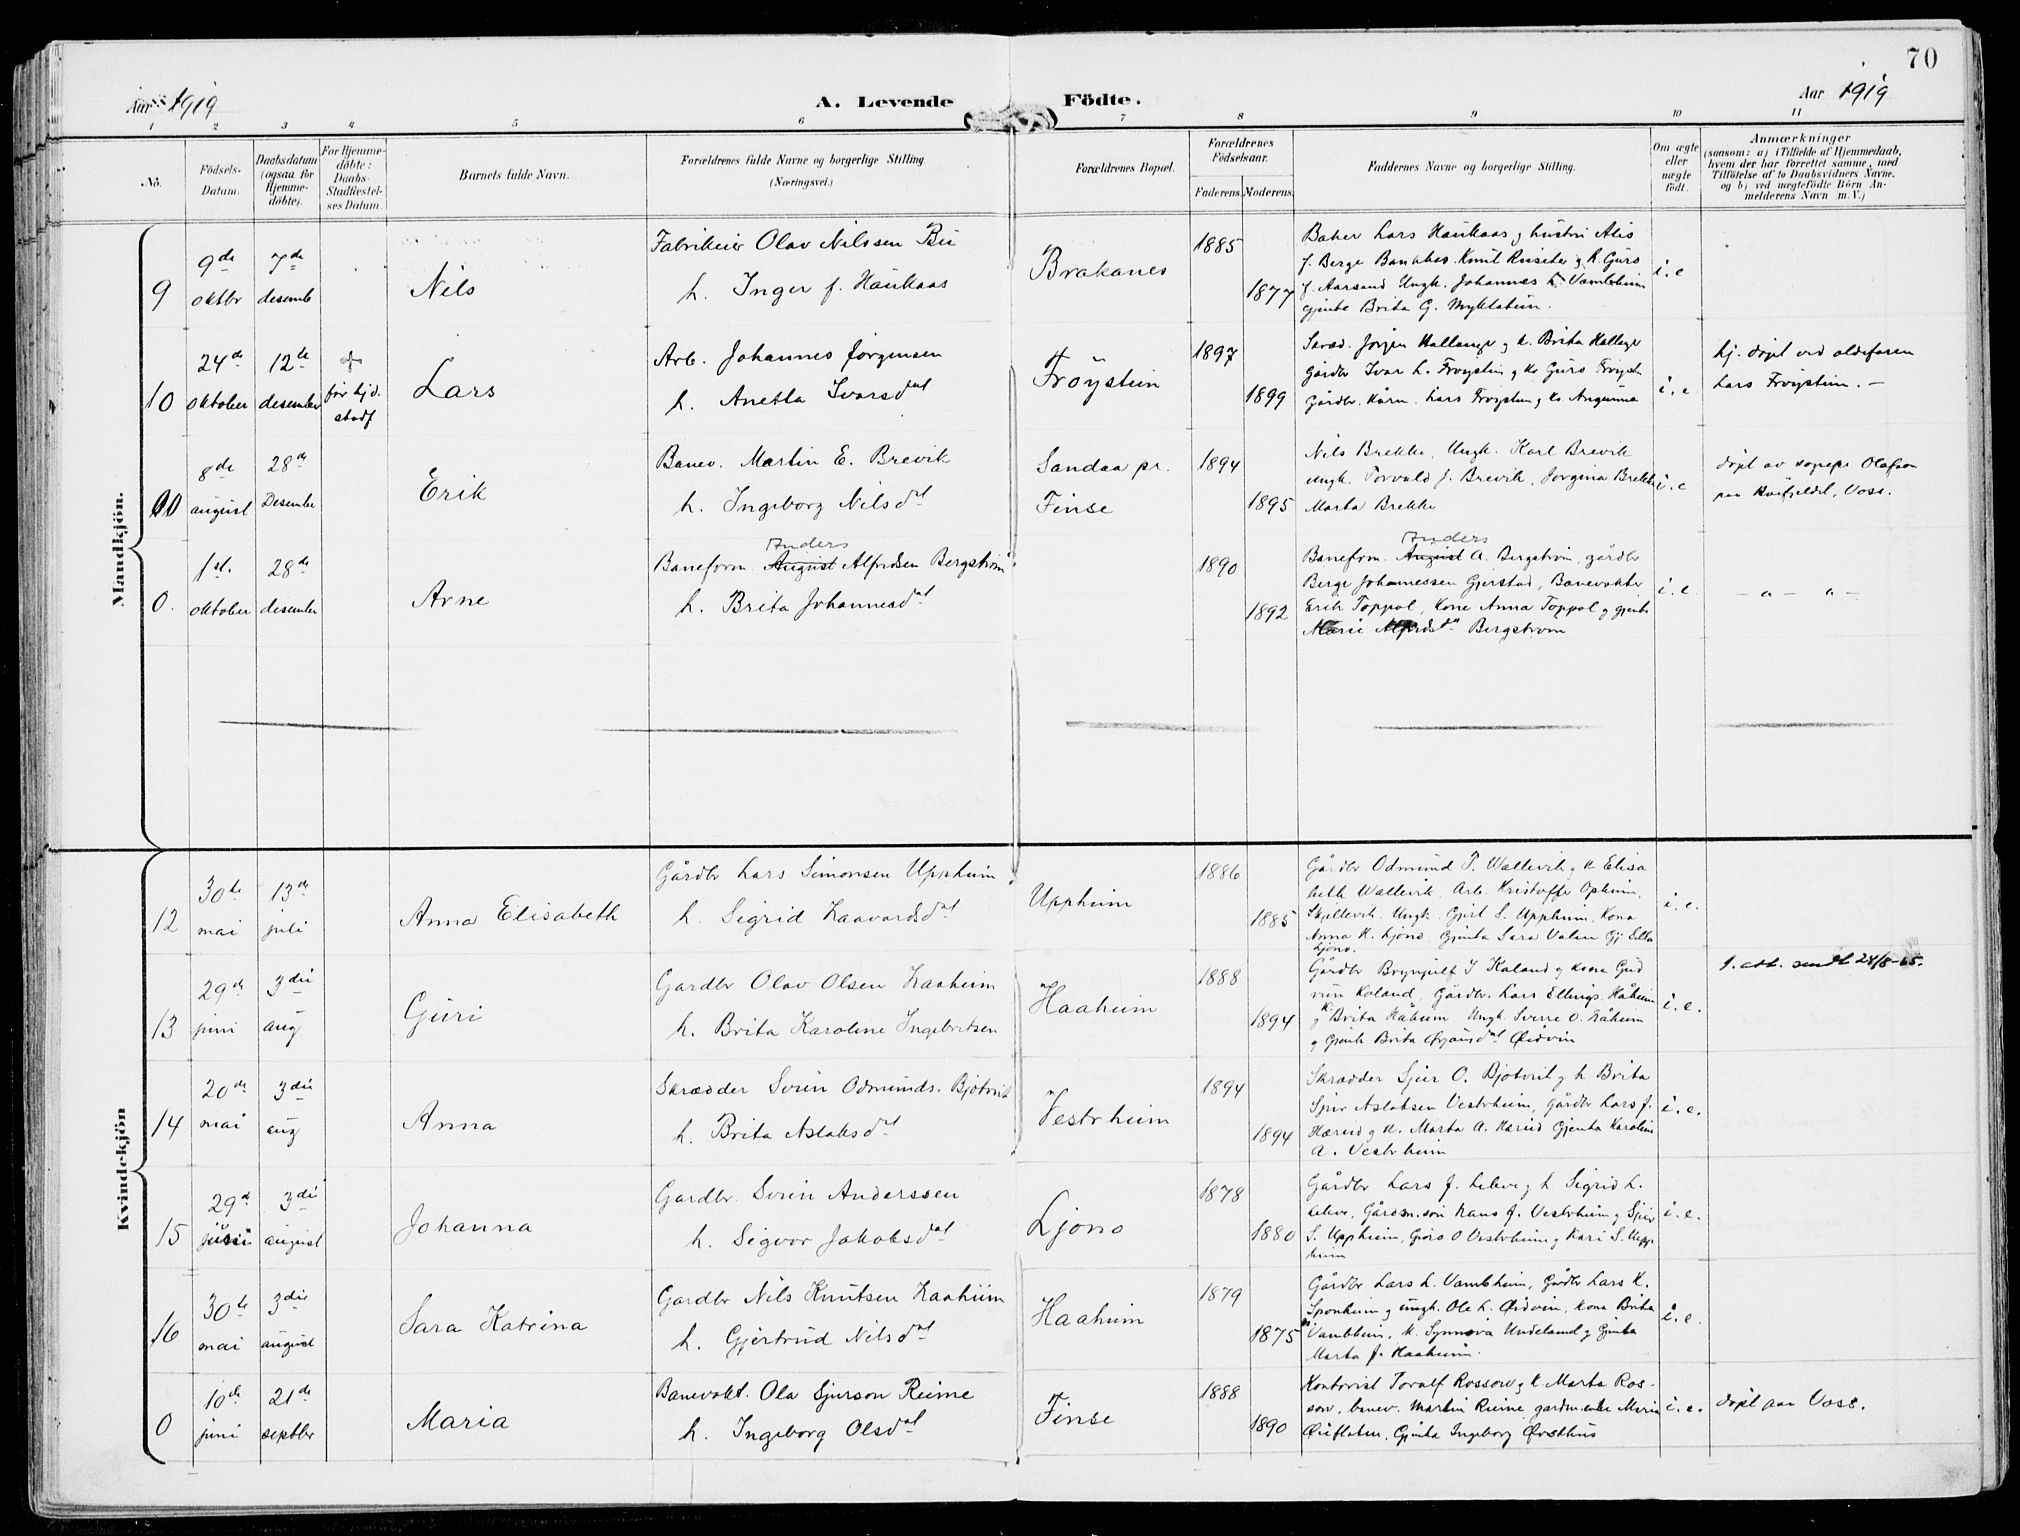 70
Aar 1919
A. Levende Födte.
Aar 1919
1 2 3 4 5 6 7 8 9 10 11
No.
Födsels-Datum.
Daabsdatum (ogsaa for Hjemme-döbte).
For Hjemme-döbte: Daabs-Stadfæstel-ses Datum.
Barnets fulde Navn.
Forældrenes fulde Navne og borgerlige Stilling. (Næringsvei.)
Forældrenes Bopæl.
Forældrenes Födselsaar.
Faderens. Moderens.
Faddernes Navne og borgerlige Stilling.
Om ægte eller uægte födt.
Anmærkninger
(saasom: a) i Tilfælde af Hjemmedaab, hvem der har forrettet samme, med Tilföielse af to Daabsvidners Navne, og b) ved uægtefödte Börn An-melderens Navn m. V.)
Mandkjön.
9
9de oktbr
7de desemb
Nils
Fabrikeier Olav Nilssen Bu
h. Inger f. Haukaas
Brakanes
1885
1877
Baker Lars Haukaas g hustru Alis
f. Berge Knut g k. Guro
f. Aarsand Ungk. Johannes
gjente Brita G. Myklatun.
i. e
10
24de oktober
12te desember
+ før hjd. stadf
Lars
Arb. Johannes Jørgensen
h. Anetta Ivarsdat
Frøystein
1897
1899
Jørgen Hallanger g k. Brita
Gårdbr Ivar L. Frøystin g ko Guro
Gårdbr. Lars Frøystein g ko.
i. e
hj. døpt ved oldefaren
Lars Frøystein. –
8de august
28de Desembe
Erik
Banev. Martin E. Brevik
h. Ingeborg Nilsdat
Sandaa pr.
Finse
1894
1895
Nils Brekke, Ungk. Karl Brevik
ungk. Torvald J. Brevik, Jorgina Brekke
Marta Brekke
i. e
døpt av sognepr Olafson
paa Voss.
0.
1st. oktober
28de desember
Arne
Anders
Baneform. August Alfredsen Bergstrøm
h. Brita Johannesdat
1890
1892
Anders
Baneform. August A. Bergstrøm, gårdbr
Berge Johannessen Gjerstad, Banevokter
Erik Toppol, Kone Anna Toppol g gjente
Marie Alfredsda Bergstrøm
i. e.
– " – " –
Kvindekjön
12
30te mai
13de juli
Anna Elisabeth
Gårdbr Lars Simonsen Uppheim
h. Sigrid Haavardsdat
Uppheim
1886
1885
Gårdbr Odmund T. Wallevik g k Elisa
beth Wallevik. Arb. Kristoffer Opheim,
Skillevik. Ungk. Gjert S. Uppheim, Kona
Anna K. Ljono. Gjenta Sara
Ljono.
i. e.
13
29de juni
3die aug
Guri
Gardbr Olav Olsen Haaheim
h. Brita Karoline Ingebritsen
Haaheim
1888
1894
Gårdbr Brynjulf I Koland g kona Gud
run Koland, Gårdbr. Lars Ellings. Håheim
g k Brita Håheim, Ungk. Sverre O. Håheim
g gjente Brita Ørjansdat Øidvin
i. e.
1. att. sendt 24/8-65.
14
20de mai
3die aug
Anna
Skrædder Svein Odmunds. Bjotveit
h. Brita Aslaksdat
Vestrheim
1894
1894
Skrædder Sjur O. Bjotveit g h Brita
Sjur Aslaksen Vestrheim, Gårdbr Lars J.
Hæreid g k. Marta A. Hæreid Gjenta Karoline
A. Vestrheim
i. e.
15
29d juni
3die august
Johanna
Gardbr. Svein Anderssen
h. Sigvor Jakobsdat
Ljono
1878
1880
Gårdbr Lars J. Lekve g h Sigrid L.
Lekve, Gårdm.søn Hans J. Vestrheim g Sjur
S. Uppheim, Guro O Vestrheim g Kari S. Upp
heim
i. e.
16
30te mai
3die august
Sara Katrina
Gardbr Nils Knutsen Haaheim
h. Gjertrud Nilsdat
Haaheim
1879
1875
Gårdbr Lars L. Vambheim, Gårdbr Lars K.
Sponheim g ungk. Ole L. Øidvin, kona Brita
Vambheim, k. Synneva Undeland g Gjenta
Marta J. Haaheim.
i. e.
0
10de juni
21de septbr
Maria
Banevokt. Ola Sjurson Reime
h. Ingeborg Olsdat
Finse
1888
1890
Kontorist Toralf Rossow g k. Marta Ros-
sow, banev. Martin Reime, gardm.enke Maria
Øuflaten, Gjenta Ingeborg Øvsthus
i. e.
døpt paa Voss.